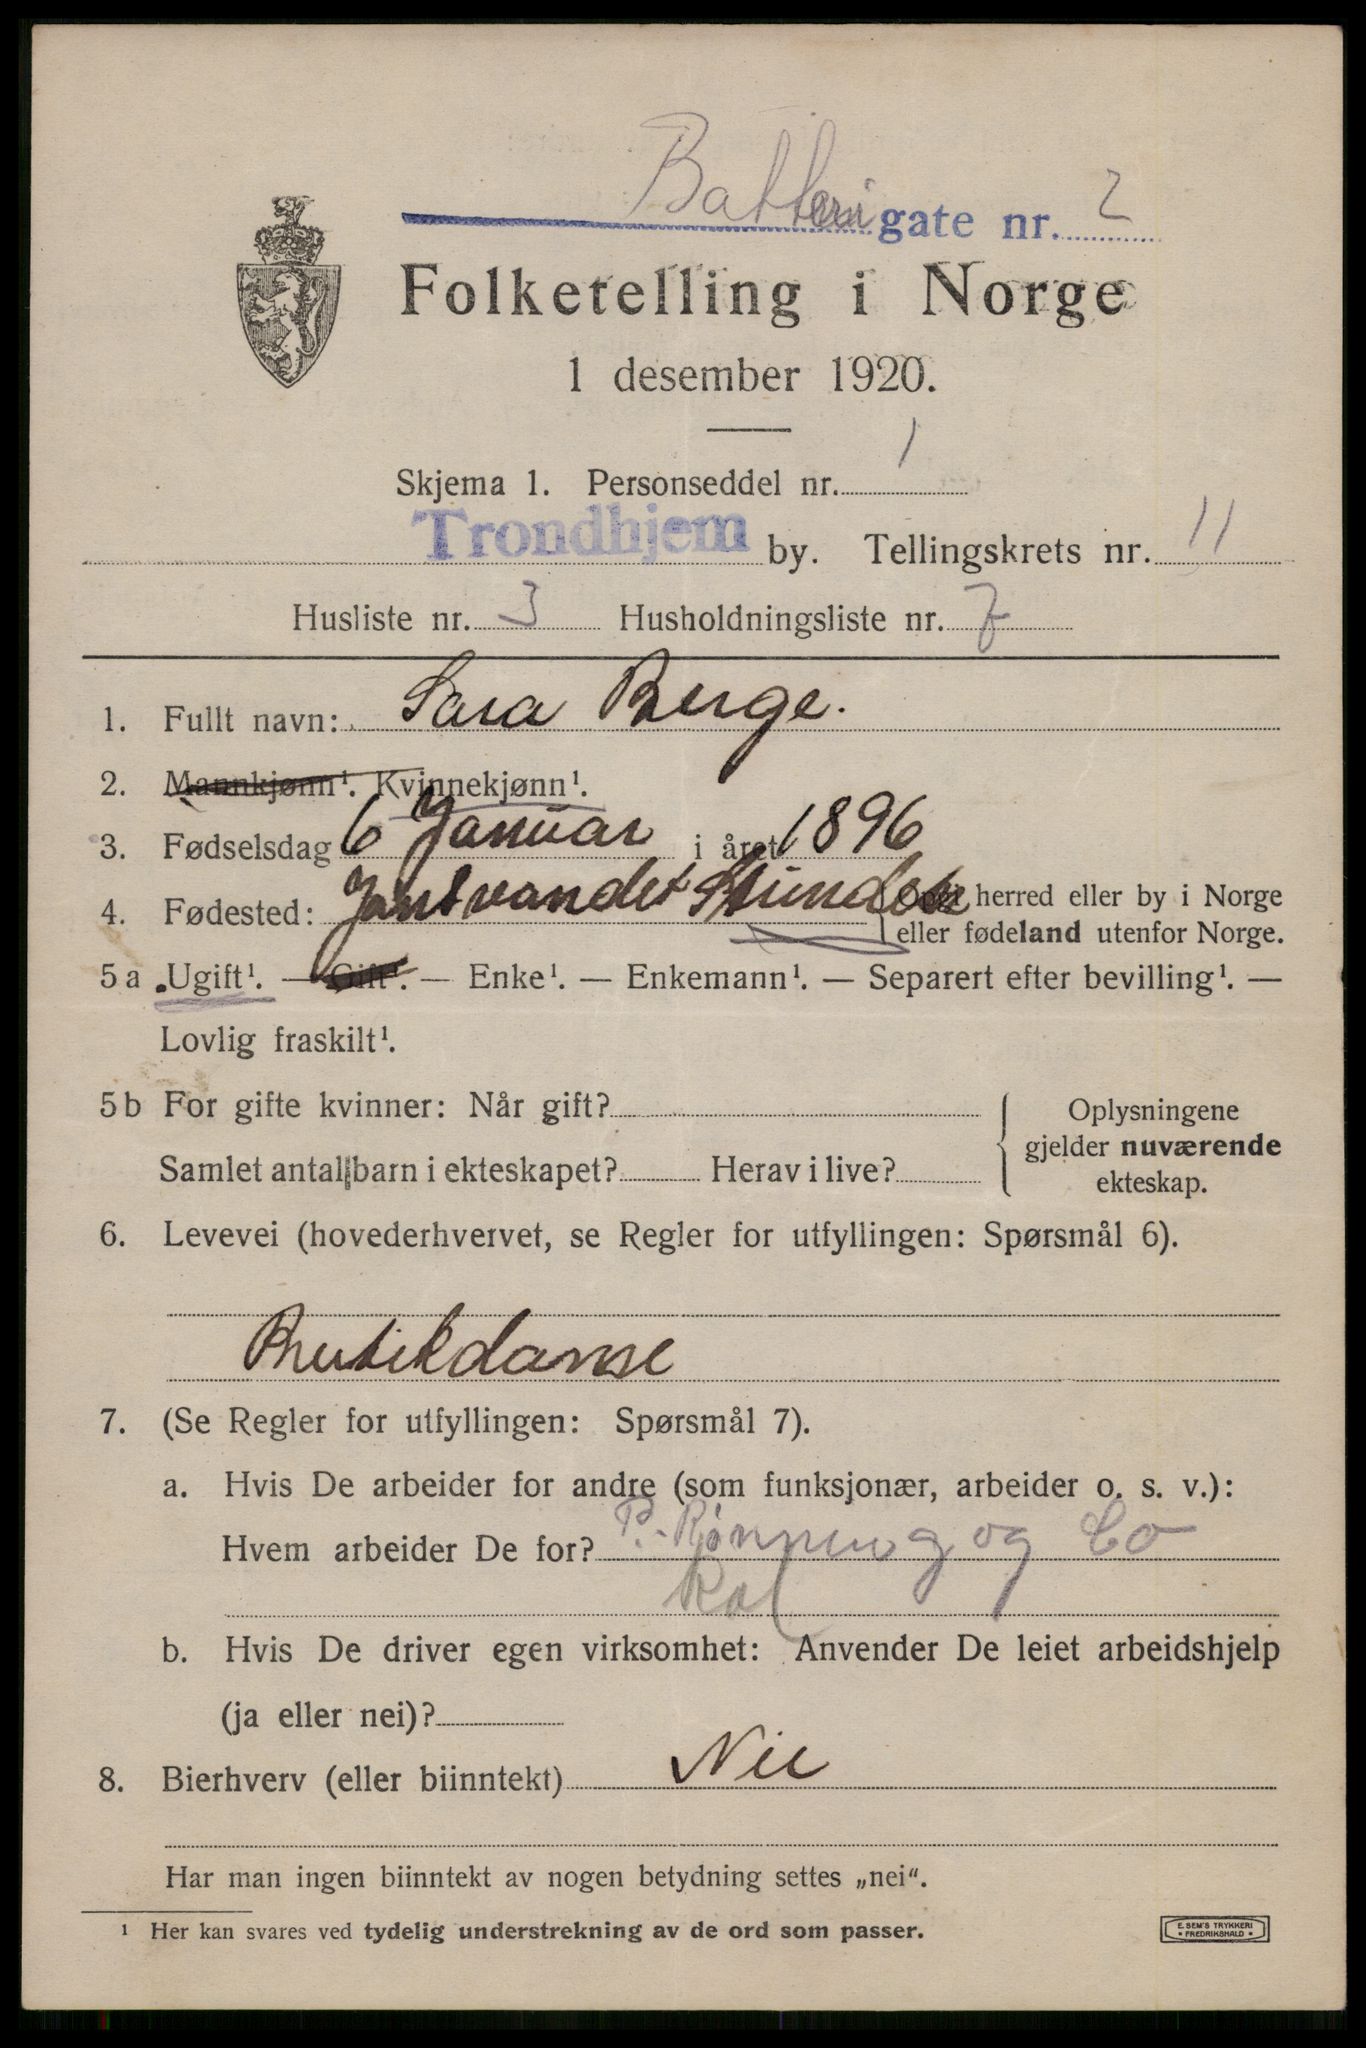 Batteri gate nr. 2
Folketelling i Norge
1 desember 1920.
Skjema 1. Personseddel nr. 1
Trondhjem by. Tellingskrets nr. 11
Husliste nr. 3 Husholdningsliste nr. 7
1. Fullt navn: Sara Berge.
2. Mannkjønn¹. Kvinnekjønn¹.
3. Fødselsdag 6 Januar i året 1896
4. Fødested: Opgi herred eller by i Norge
eller fødeland utenfor Norge.
5a Ugift¹. — Gift¹. — Enke¹. — Enkemann¹. — Separert efter bevilling¹. —
Lovlig fraskilt¹.
5b For gifte kvinner: Når gift? Oplysningene
gjelder nuværende
Samlet antal barn i ekteskapet? Herav i live?
ekteskap.
6. Levevei (hovederhvervet, se Regler for utfyllingen: Spørsmål 6).
Butikdame
7. (Se Regler for utfyllingen: Spørsmål 7).
a. Hvis De arbeider for andre (som funksjonær, arbeider o. s. v.):
Hvem arbeider De for? P. Rønning og Co
b. Hvis De driver egen virksomhet: Anvender De leiet arbeidshjelp
(ja eller nei)?
8. Bierhverv (eller biinntekt) Nei
Har man ingen biinntekt av nogen betydning settes „nei".
¹ Her kan svares ved tydelig understrekning av de ord som passer.
E. SEM'S TRYKKERI
FREDRIKSHALD